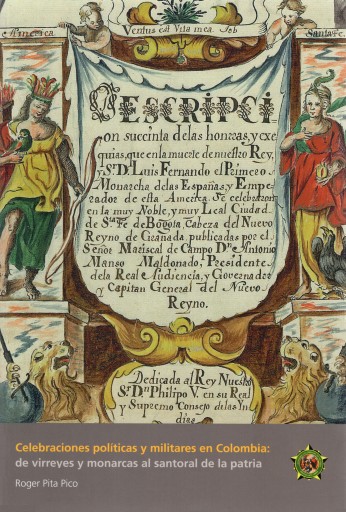 Ventus est Vita mea Job
America
Santafe
DEscripci
on succinta de las honrras, y exe
quias, que en la muerte de nuestro Rey,
y Sr. Dn. Luis Fernando el Primero
Monarcha de las Españas, y Empe
rador de esta America Se celebraron
en la muy Noble, y muy Leal Ciudad
de Sta. Fe de Bogota, Cabeza del Nuevo
Reyno de Granada publicadas por el
Señor Mariscal de Campo Dn. Antonio
Manso Maldonado, Presidente
de la Real Audiencia, y Governador
y Capitan General del Nuevo
Reyno.
Dedicada al Rey Nuestro
Sr. Dn. Philipo V. en su Real
y Supremo Consejo de las Yn
dias
Celebraciones políticas y militares en Colombia:
de virreyes y monarcas al santoral de la patria
Roger Pita Pico